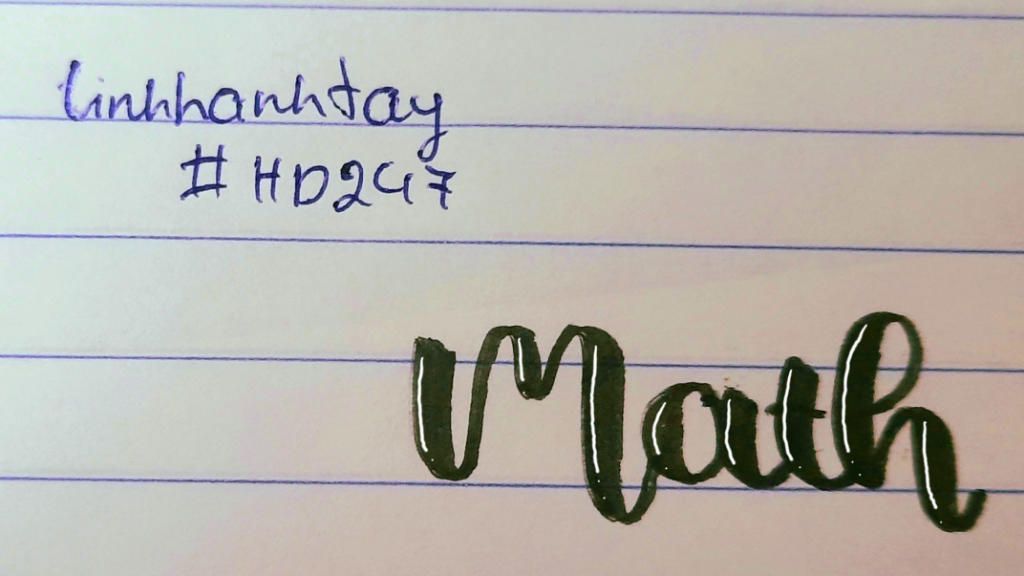 linhhanhtay
#HD247
Math